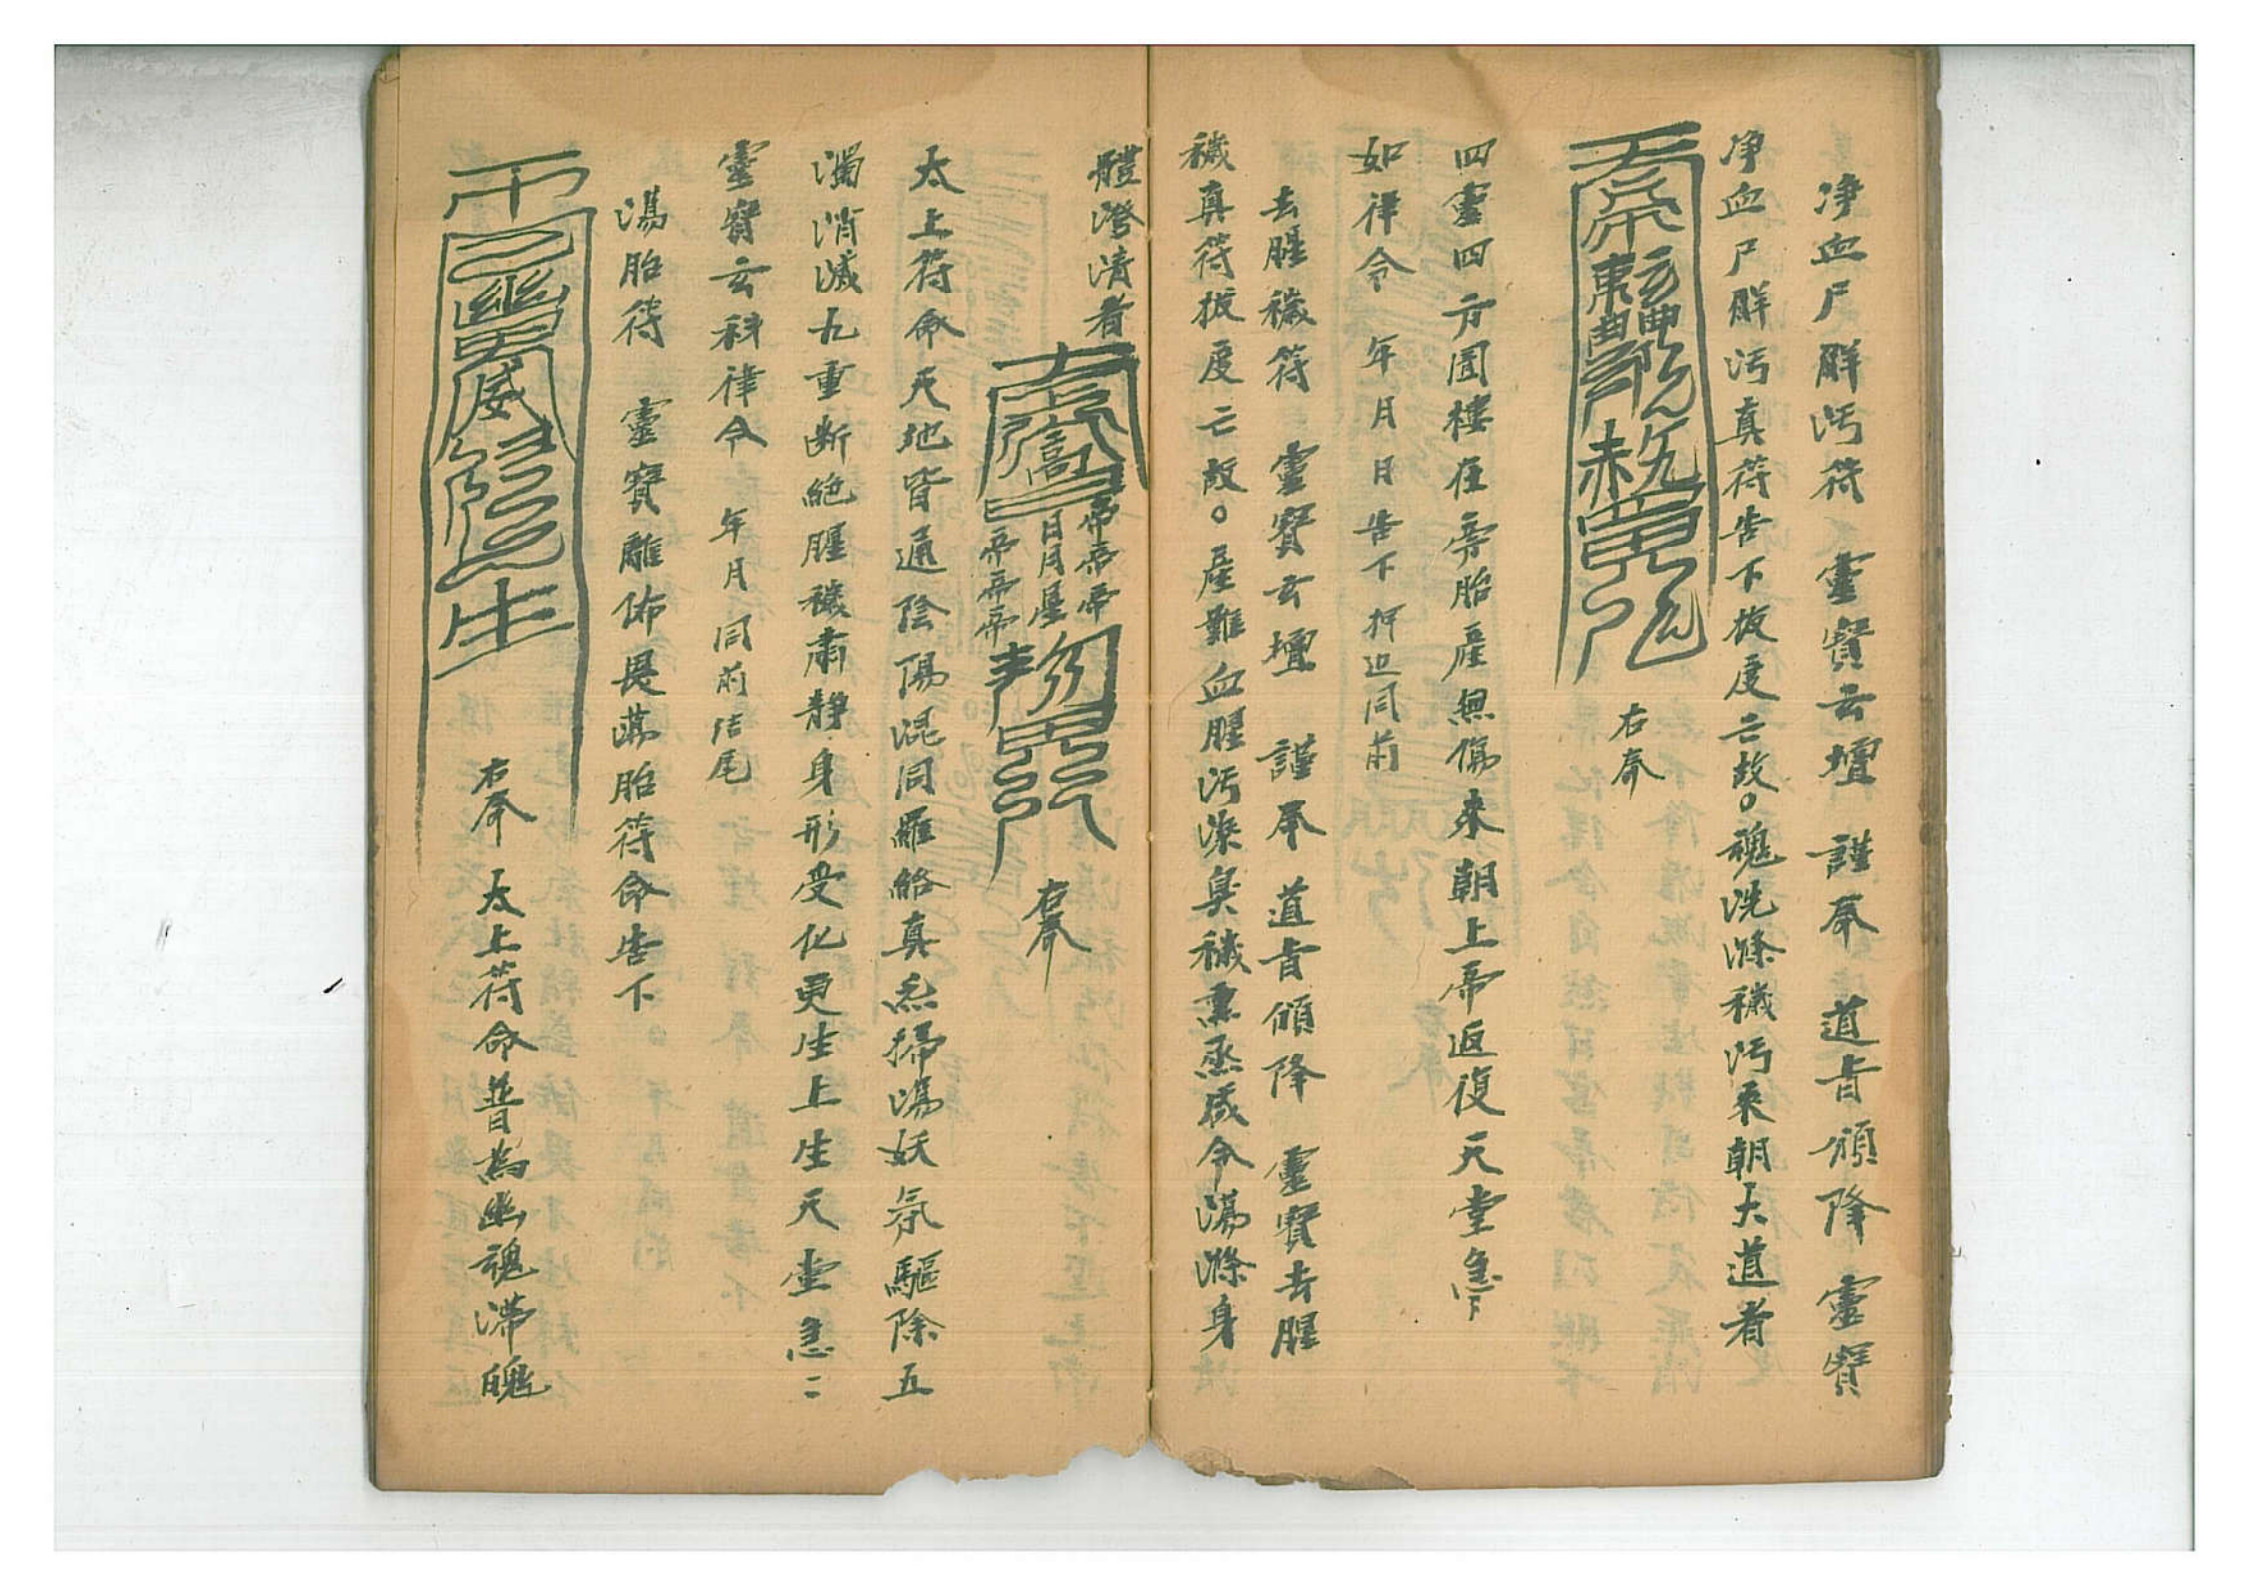 净血尸解污符　靈寶玄壇　謹奉　道旨頒降　靈寶
净血尸解污真符告下拔度亡故。魂洗滌穢污来朝大道者
右奉
四靈四方圍樓在旁胎產無傷来朝上帝返復天堂急下
如律令　年月日告下押廷同前
去腥穢符　靈寶玄壇　謹奉　道旨頒降　靈寶去腥
穢真符拔度亡故。產難血腥污染臭穢熏蒸咸令蕩滌身
體澄清者
帝帝帝
日月星
帝帝帝
右奉
太上符命天地皆通陰陽混同羅絡真炁掃蕩妖氛驅除五
濁消滅九重斷絕腥穢肅静身形受化更生上生天堂急二
靈寶玄科律令　年月同前结尾
蕩胎符　靈寶離怖畏蕩胎符命告下
威
生
右奉　太上符命普為幽魂滯魄